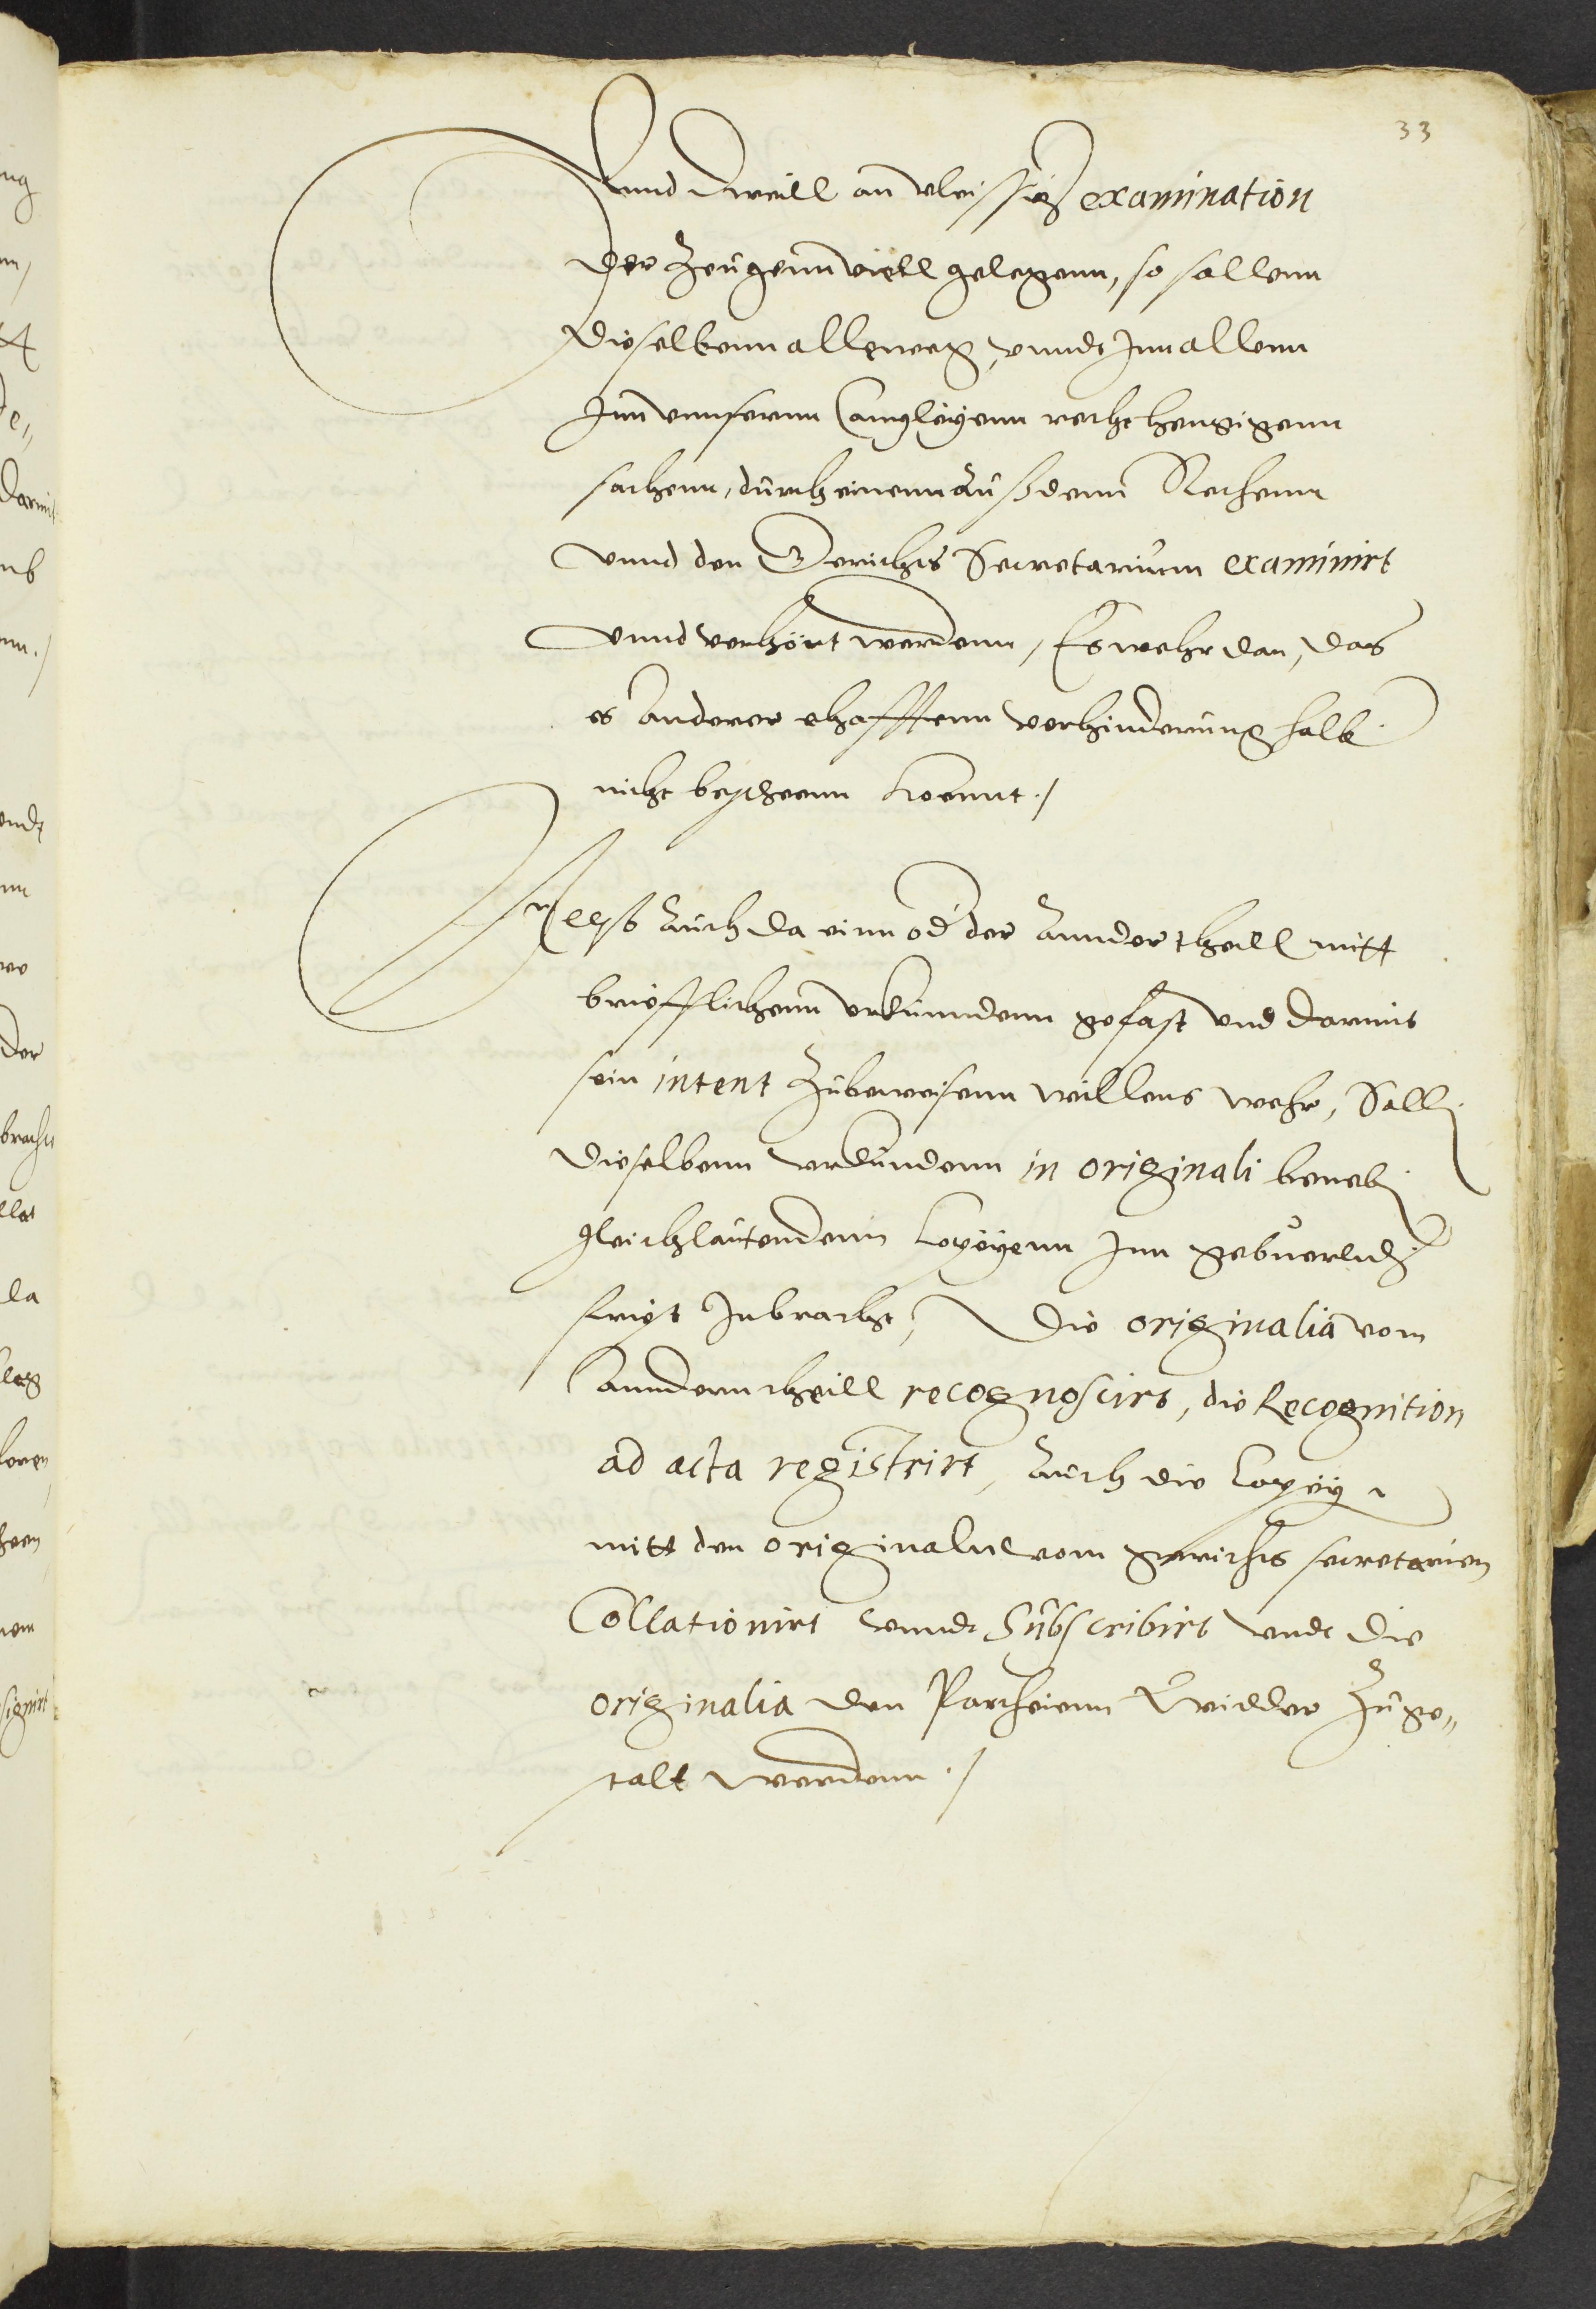 33
Vnnd dweill an vleissig examination
der Zeugenn viell gelegenn, so sallenn
dieselbenn alleweg, vnndt Inn allenn
Inn vnnsernn Cantzleyenn rechthengigenn
sachenn, durch einenn außdenn Rethenn
vnnd den Gerichts Secretarium examinirt
vnnd verhört werdenn, Es wehr dan, das
es anderer ehafftenn verhinderung halb
nicht bescheenn koennt./
auch da einn od der annder theill mitt
briefflichenn vrkunndenn gefast vnd darmit
sein intent Zubeweisenn willens wehr, Sall
dieselbenn vrkundenn in originali beneb
gleichlautendenn Copeyenn Inn gebuerlich
frist Inbracht, Die originalia vom
anndernn theill recognoscirt, die Recognition
ad acta registrirt, auch die Copey
mitt den originaln vom gerichts secretarien
Collationirt vnndt Subscribirt vndt die
originalia den Partheienn widder Zuge„
stalt werdenn./